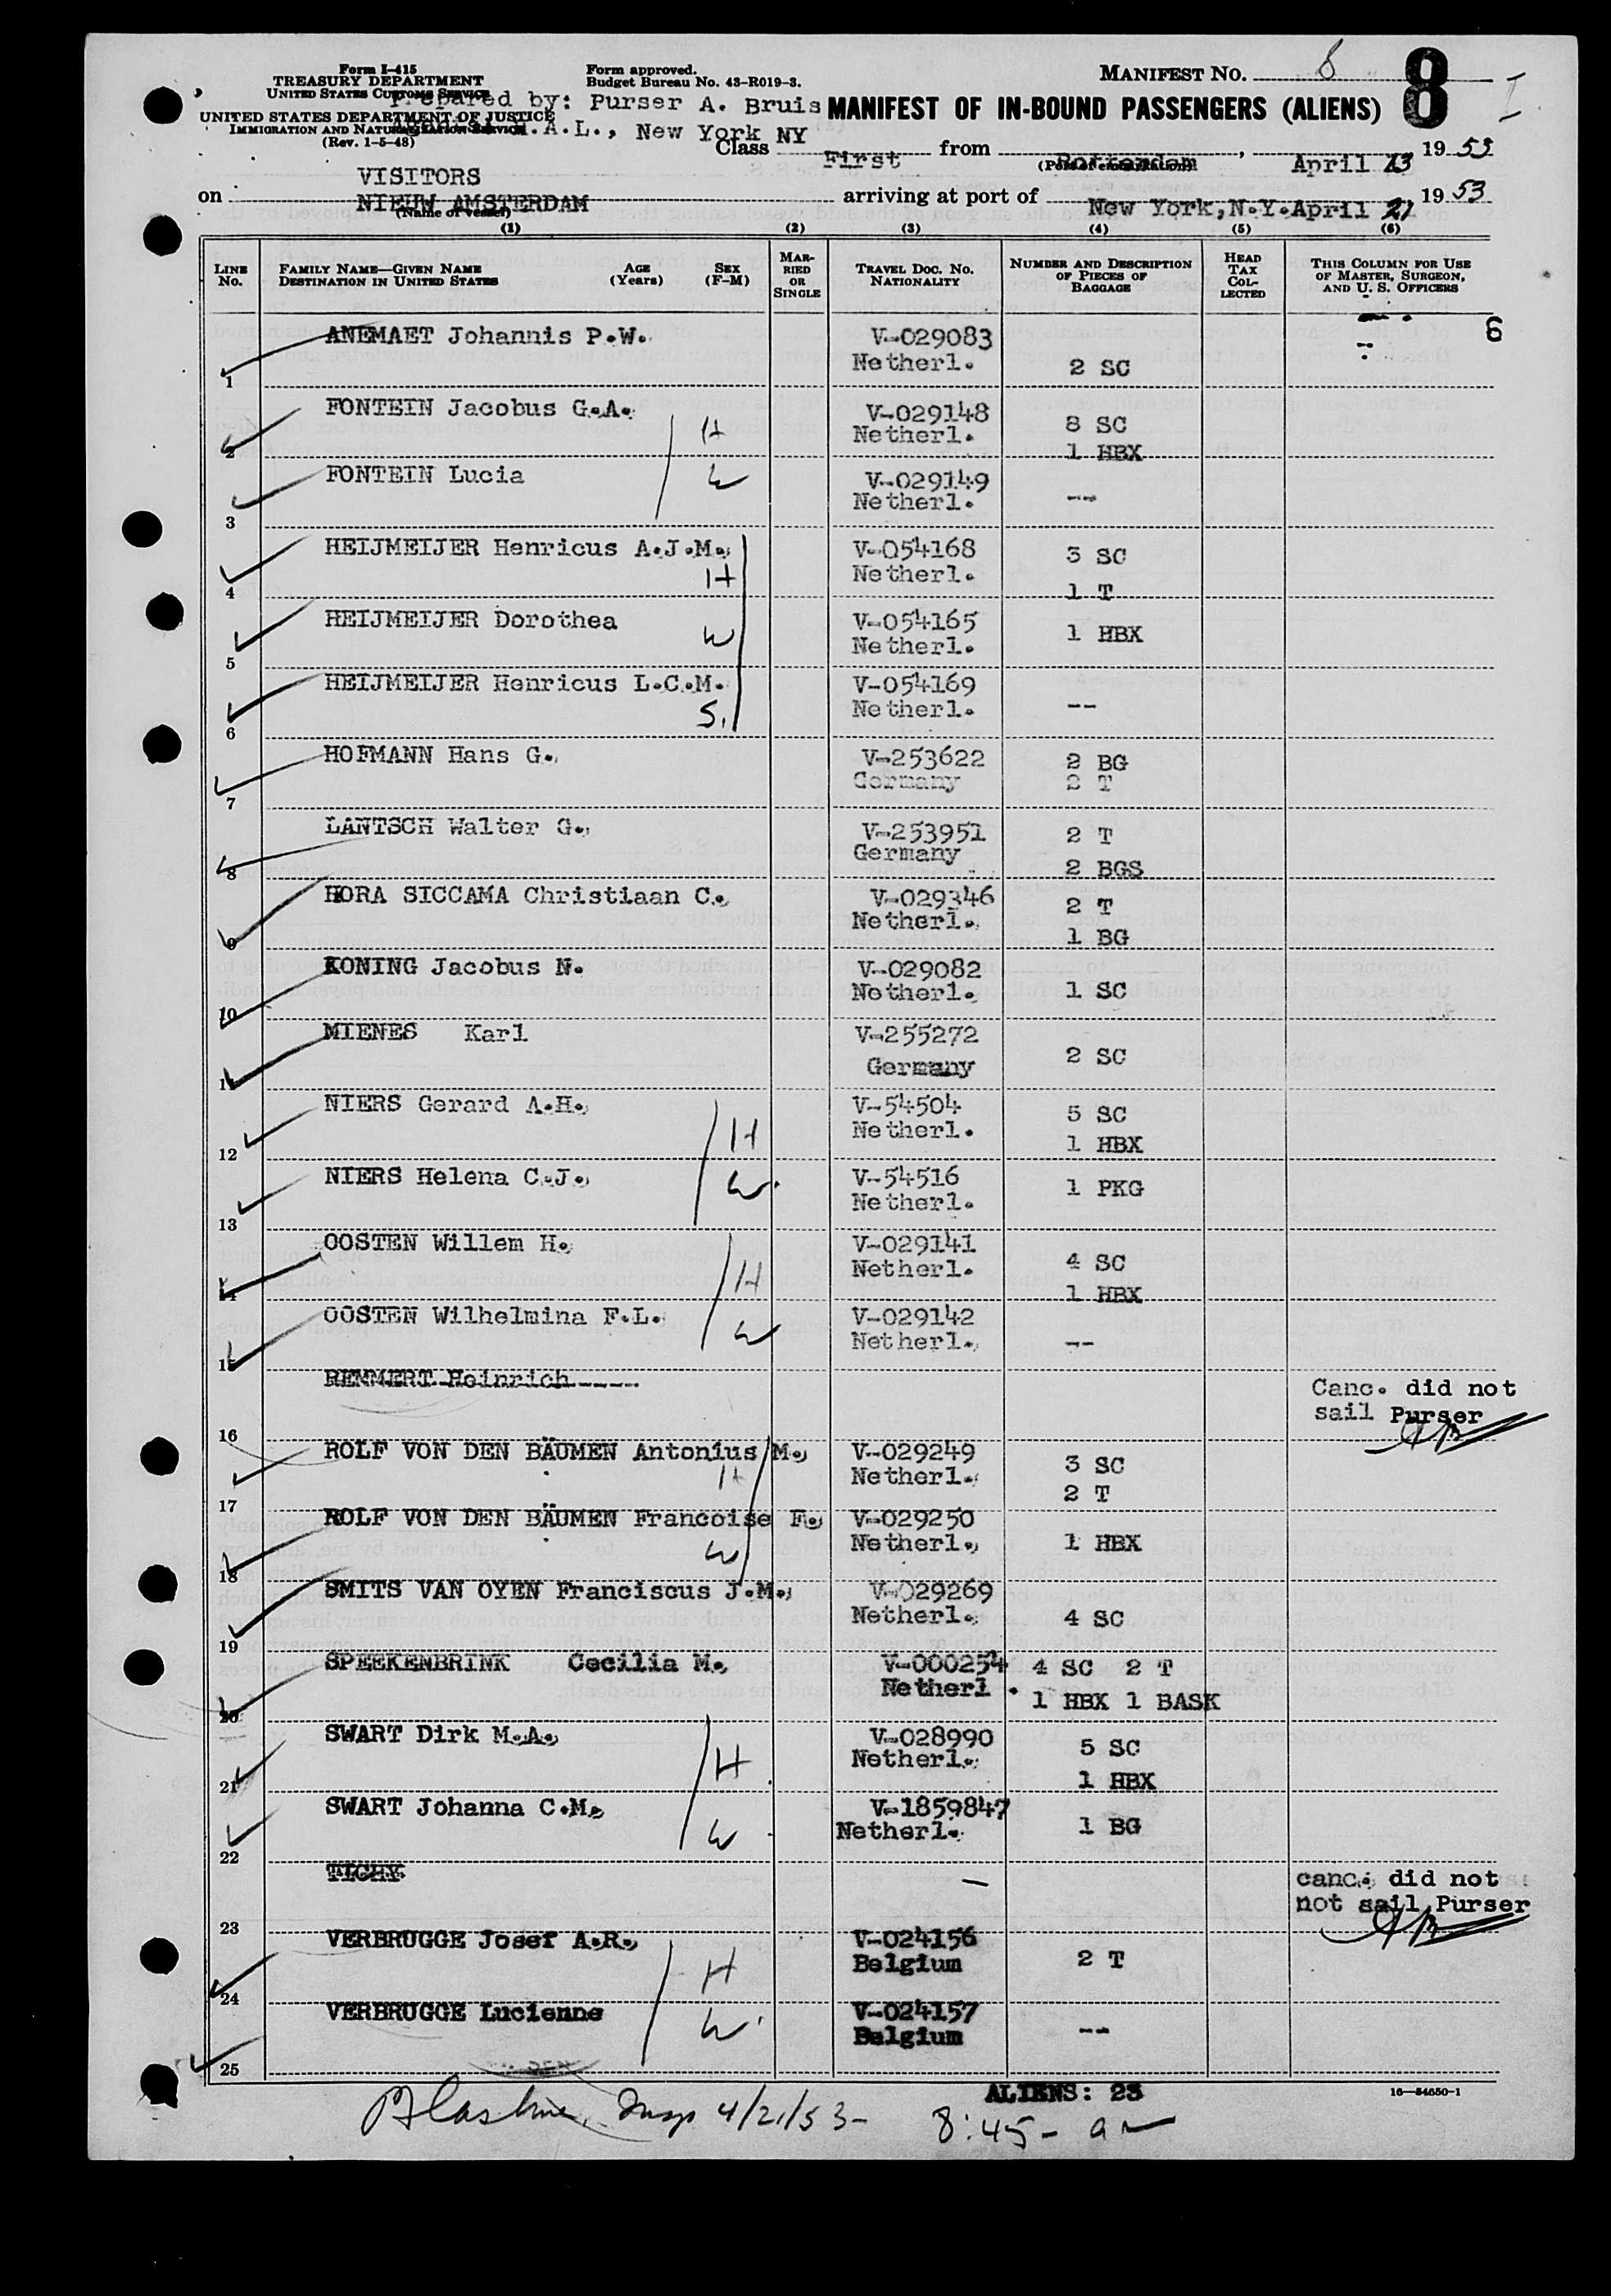 Form I-415
TREASURY DEPARTMENT
UNITED STATES CUSTOMS SERVICE
UNITED STATES DEPARTMENT OF JUSTICE
IMMIGRATION AND NATURALIZATION SERVICE
(Rev. 1-5-48)
Form approved.
Budget Bureau No. 43-R019-3.
Prepared by: Purser A. Bruis
H.A.L., New York NY
MANIFEST NO. 8
8
MANIFEST OF IN-BOUND PASSENGERS (ALIENS)
Class First from Rotterdam, April 13 1953
(Port of embarkation)
VISITORS
on NIEUW AMSTERDAM arriving at port of New York, N.Y. April 21 1953
(Name of vessel)
(1) (2) (3) (4) (5) (6)
LINE NO. FAMILY NAME—GIVEN NAME DESTINATION IN UNITED STATES AGE (Years) SEX (F-M) MARRIED OR SINGLE TRAVEL DOC. NO. NATIONALITY NUMBER AND DESCRIPTION OF PIECES OF BAGGAGE HEAD TAX COLLECTED THIS COLUMN FOR USE OF MASTER, SURGEON, AND U. S. OFFICERS
6
ANEMAET Johannis P.W. V-029083
1 Netherl. 2 SC
FONTEIN Jacobus G.A. H V-029148 8 SC
2 Netherl. 1 HBX
FONTEIN Lucia W V-029149
3 Netherl. --
HEIJMEIJER Henricus A.J.M. V-054168 3 SC
4 H Netherl. 1 T
HEIJMEIJER Dorothea V-054165
5 W Netherl. 1 HBX
HEIJMEIJER Henricus L.C.M. V-054169
6 S. Netherl. --
HOFMANN Hans G. V-253622 2 BG
7 Germany 2 T
LANTSCH Walter G. V-253951 2 T
8 Germany 2 BGS
HORA SICCAMA Christiaan C. V-029346 2 T
9 Netherl. 1 BG
KONING Jacobus N. V-029082
10 Netherl. 1 SC
MIENES Karl V-255272
11 Germany 2 SC
NIERS Gerard A.H. H V-54504 5 SC
12 Netherl. 1 HBX
NIERS Helena C.J. W V-54516
13 Netherl. 1 PKG
OOSTEN Willem H. H V-029141 4 SC
14 Netherl. 1 HBX
OOSTEN Wilhelmina F.L. W V-029142
15 Netherl. --
REMMERT Heinrich Canc. did not
16 sail Purser
ROLF VON DEN BÄUMEN Antonius M. V-029249 3 SC
17 H Netherl. 2 T
ROLF VON DEN BÄUMEN Francoise F. V-029250
18 W Netherl. 1 HBX
SMITS VAN OYEN Franciscus J.M. V-029269
19 Netherl. 4 SC
SPEEKENBRINK Cecilia M. V-000254 4 SC 2 T
20 Netherl. 1 HBX 1 BASK
SWART Dirk M.A. H V-028990 5 SC
21 Netherl. 1 HBX
SWART Johanna C.M. W V-1859847
22 Netherl. 1 BG
TICHY — canc. did not
23 not sail Purser
VERBRUGGE Josef A.R. H V-024156
24 Belgium 2 T
VERBRUGGE Lucienne W V-024157
25 Belgium --
ALIENS: 23
16—54650-1
Insp 4/21/53- 8:45- am